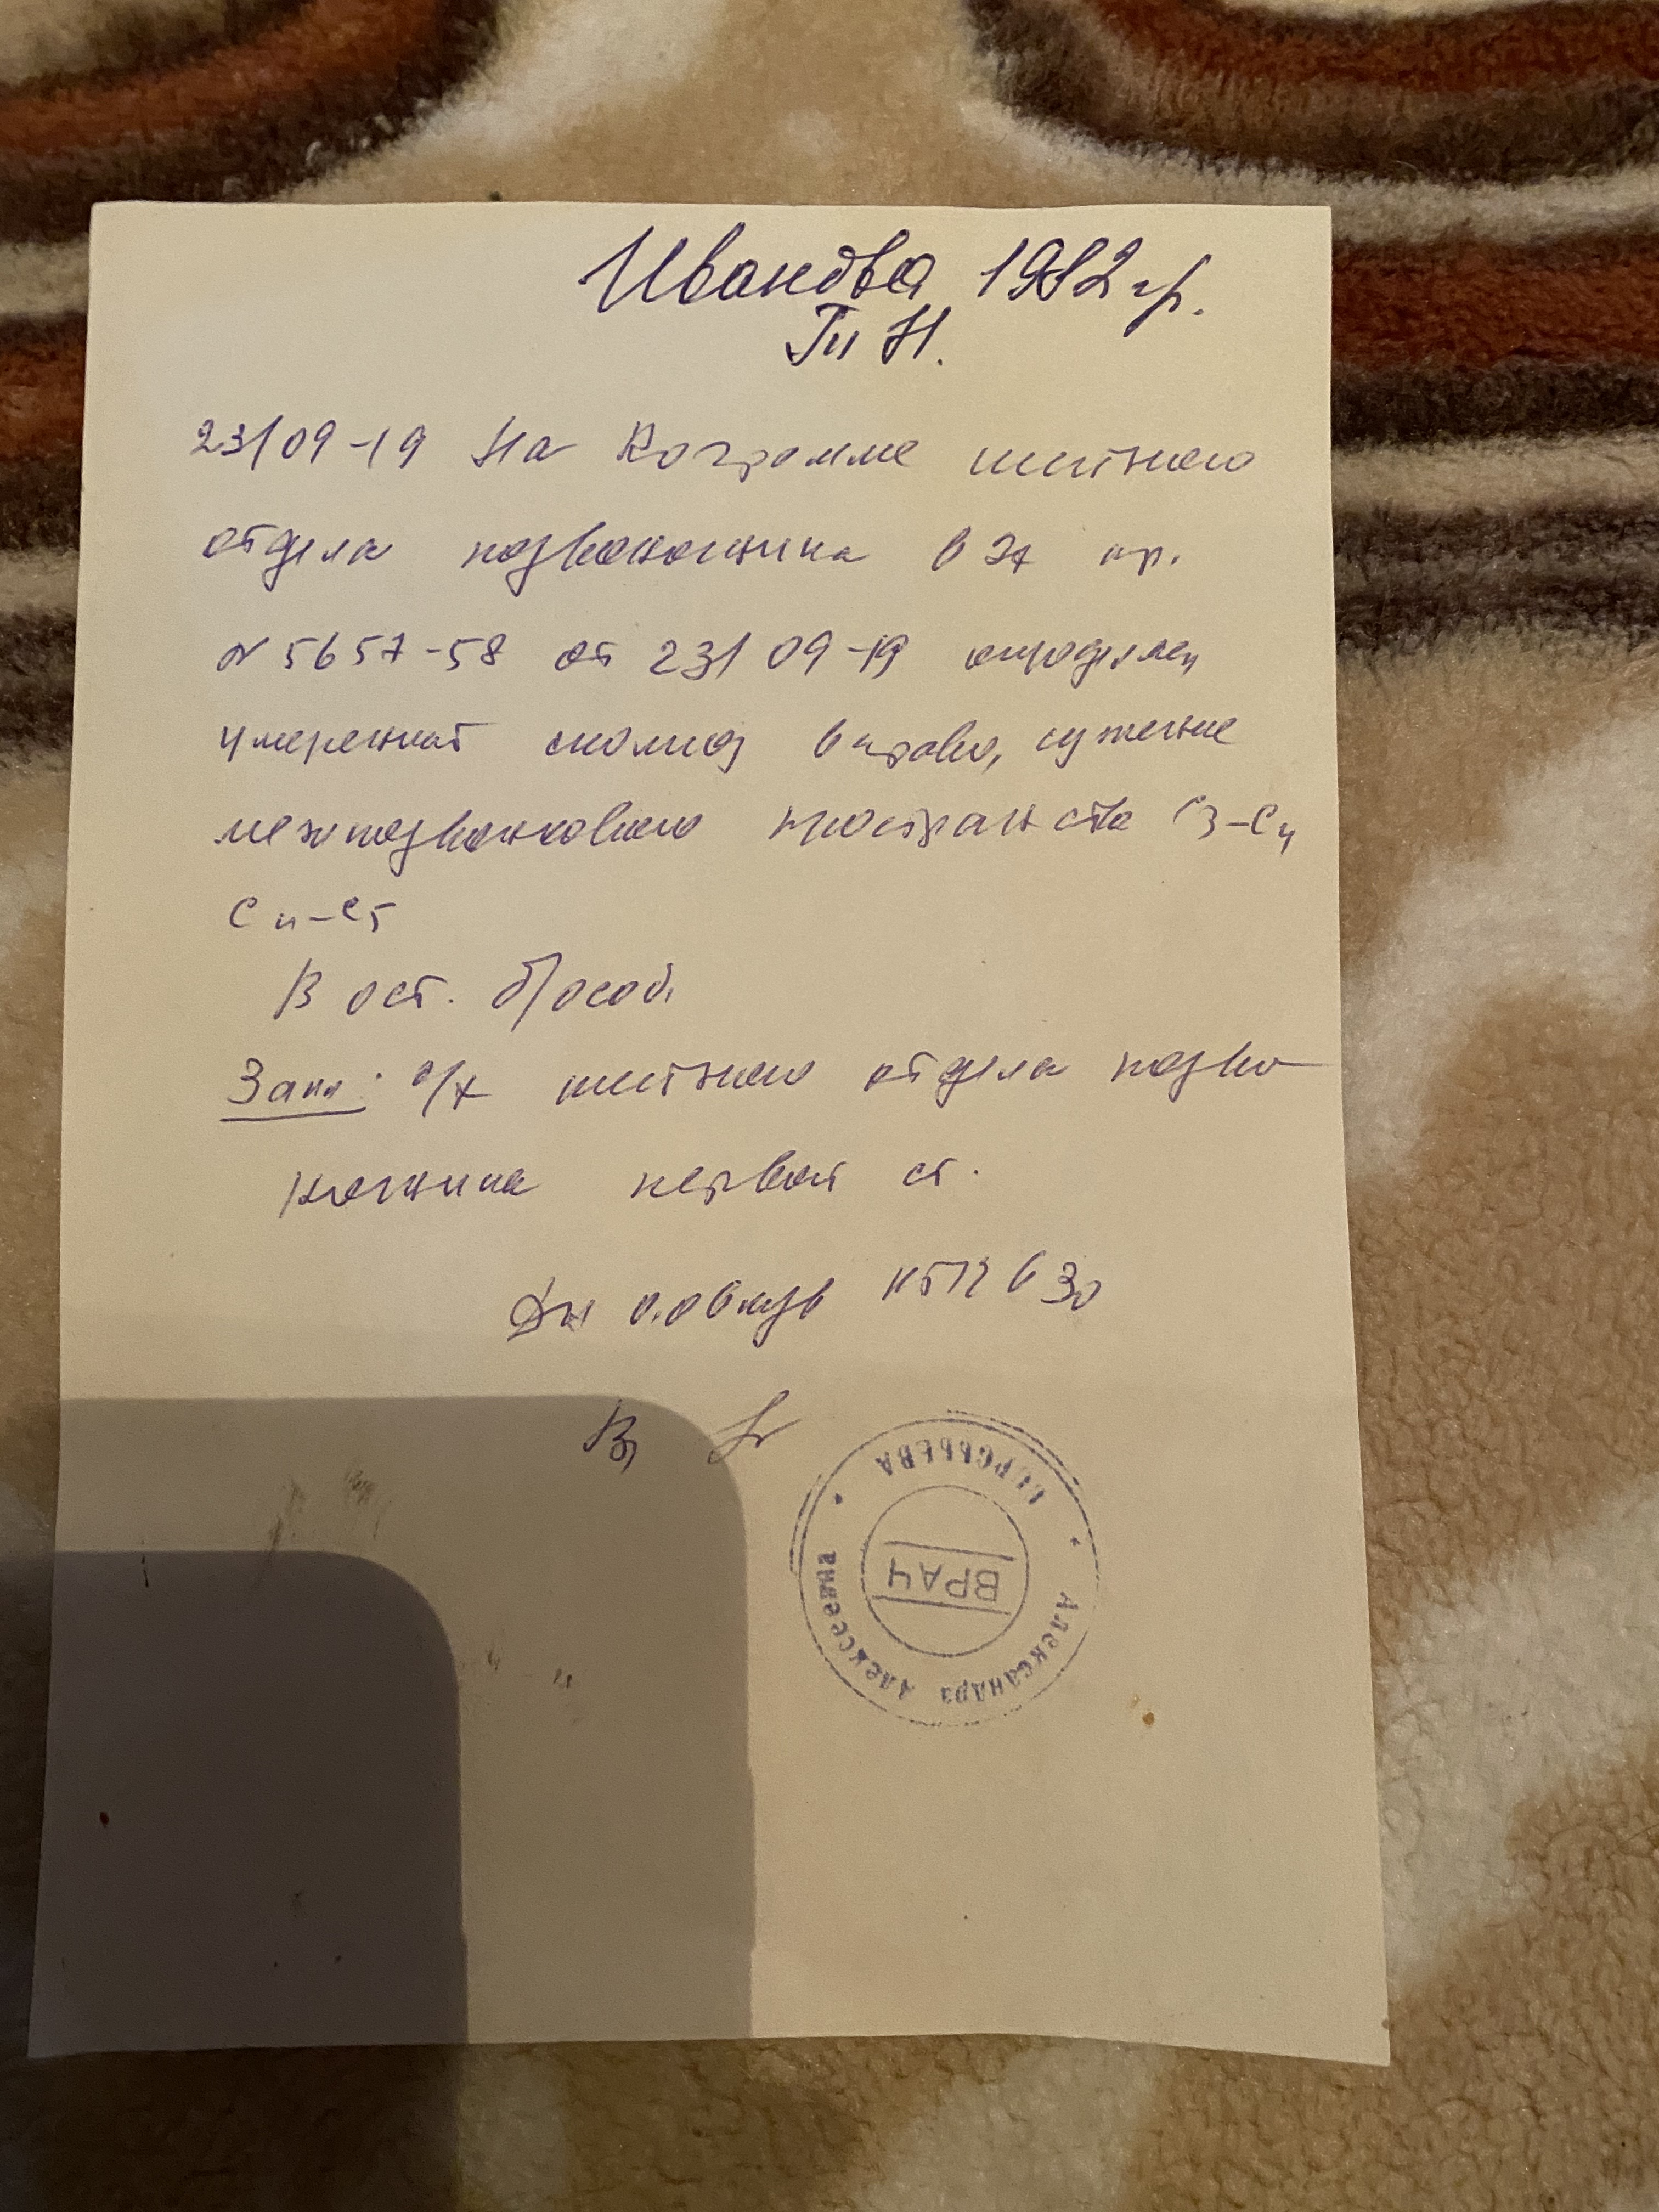 Иванова 1982 г.р.
23/09-19 На Rограмме шейного
отдела позвоночника в 2х пр.
N 5657-58 от 23/09-19 определяет
умеренный сколиоз вправо, сужение
межпозвонкового пространства С3-С4
С4-С5
В ост. б/особ.
Закл: о/х шейного отдела позво
ночника первой ст.
0.06мзв
В/
ВРАЧ
Александра Алексеевна